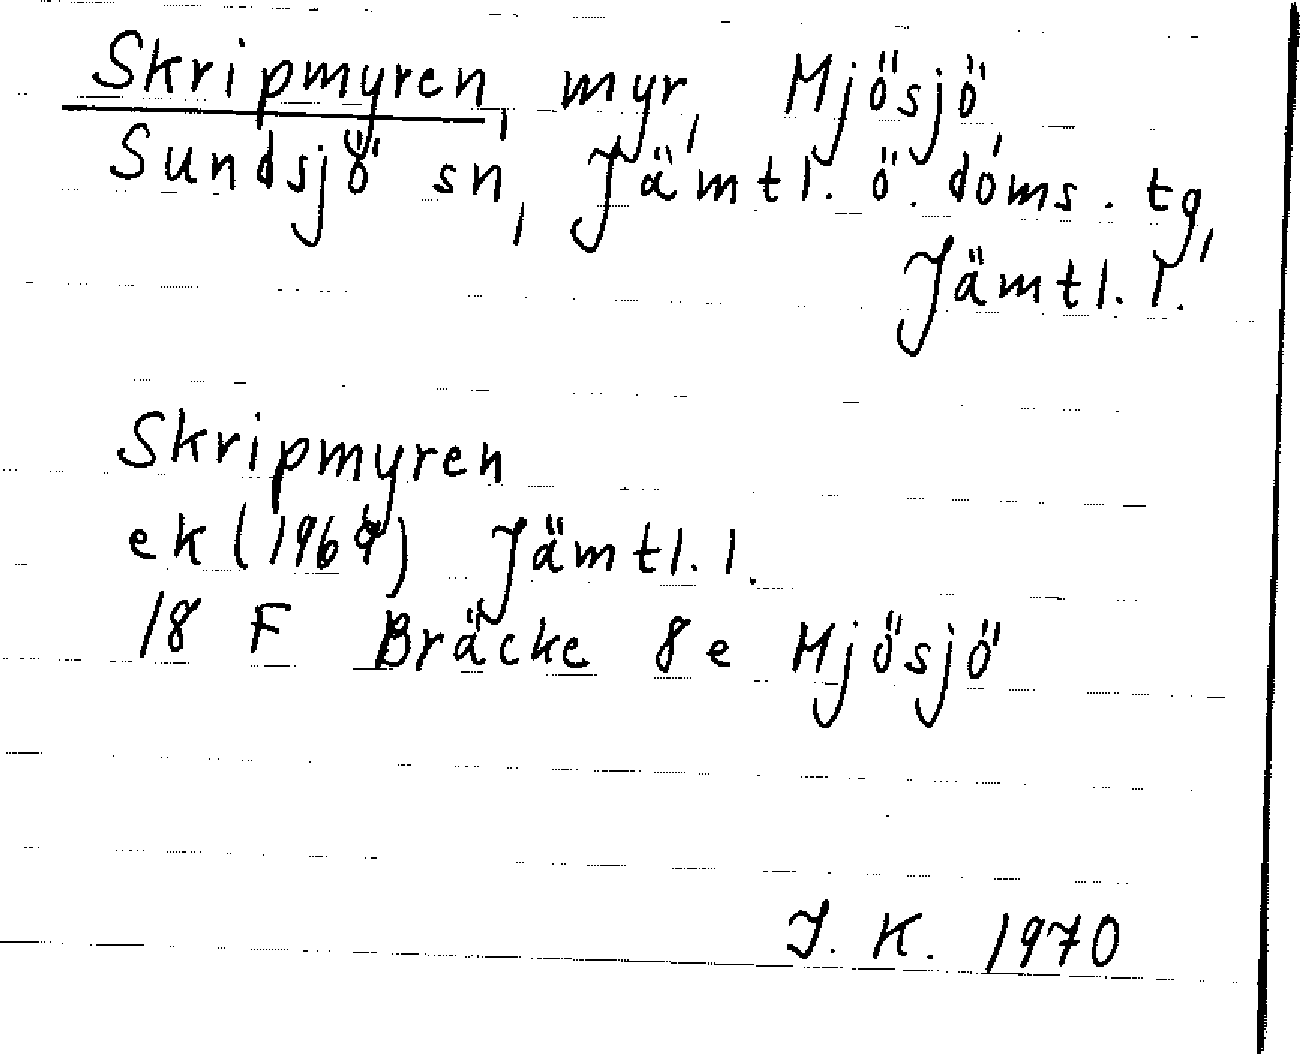 Skripmyren, myr, Mjösjö,
Sundsjö sn, Jämtl. ö. doms. tg,
Jämtl. l.
Skripmyren
ek (1969) Jämtl. l.
18 F Bräcke 8e Mjösjö
J. K. 1970